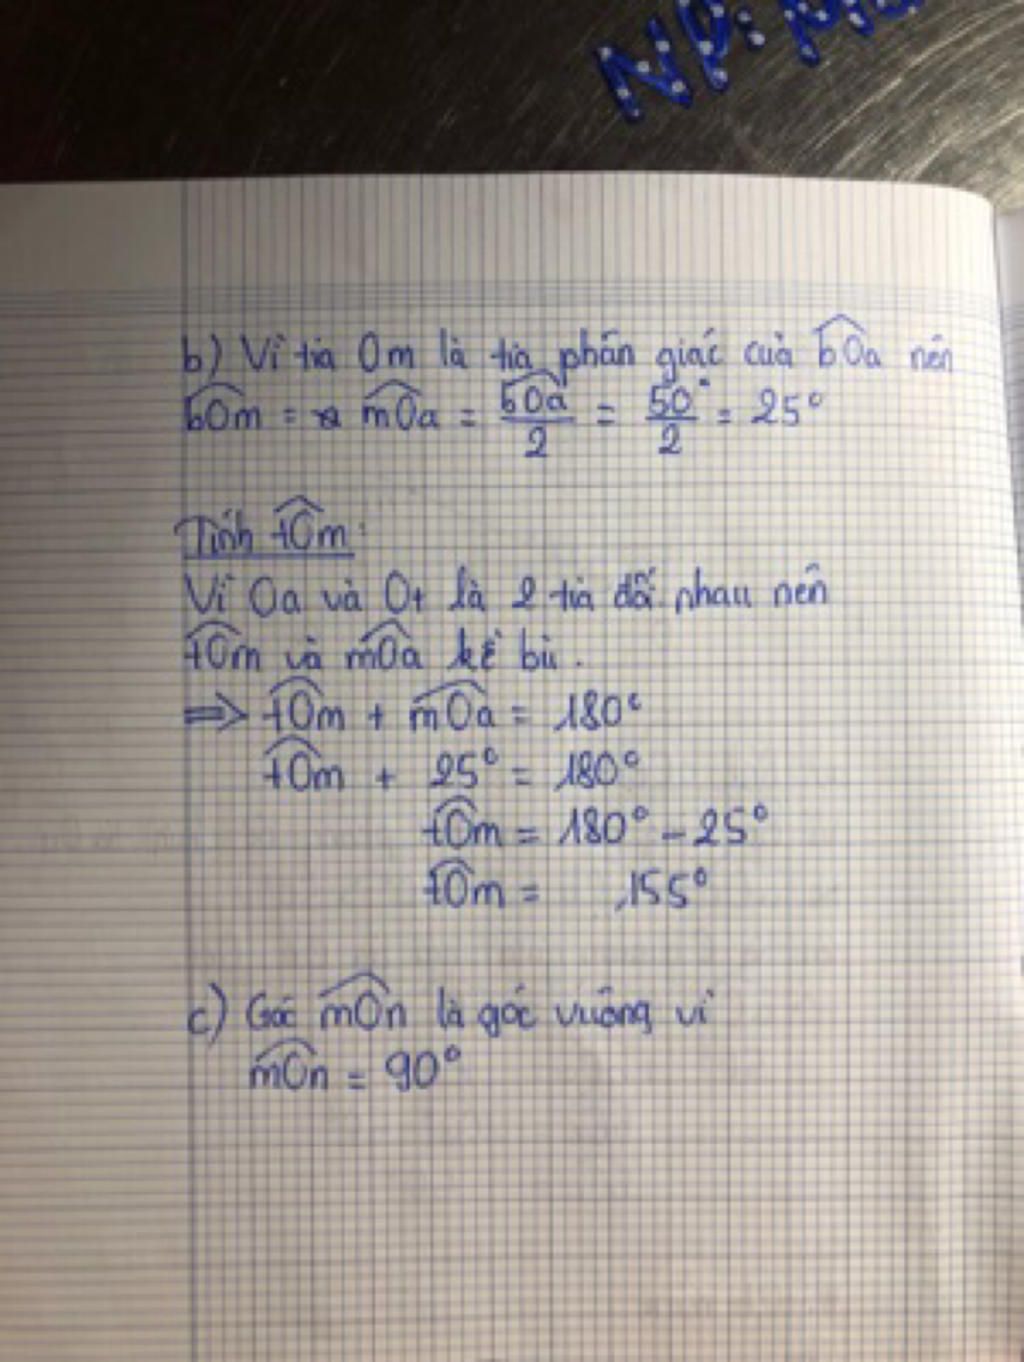 NP:
b) Vì tia Om là tia phân giác của b̂Oa nên
b̂Om = m̂Oa = b̂Oa/2 = 50°/2 = 25°
Tính t̂Om:
Vì Oa và Ot là 2 tia đối nhau nên
t̂Om và m̂Oa kề bù.
=> t̂Om + m̂Oa = 180°
t̂Om + 25° = 180°
t̂Om = 180° - 25°
t̂Om = 155°
c) Góc m̂On là góc vuông vì
m̂On = 90°